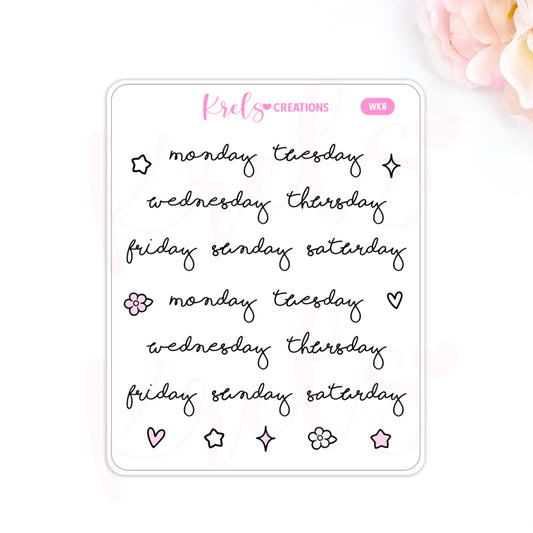 Krels CREATIONS WK8
monday tuesday
wednesday thursday
friday sunday saturday
monday tuesday
wednesday thursday
friday sunday saturday